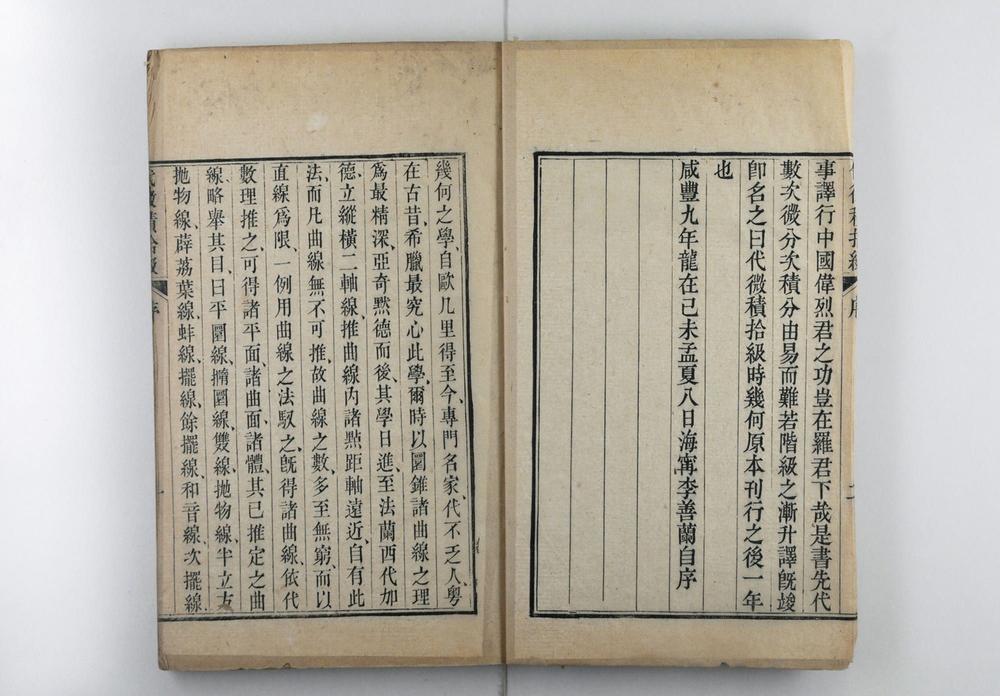 事譯行中國偉烈君之功豈在羅君下哉是書先代
數次微分次積分由易而難若階級之漸升譯旣竣
卽名之曰代微積拾級時幾何原本刊行之後一年
也
咸豐九年龍在己未孟夏八日海甯李善蘭自序
幾何之學、自歐几里得至今、專門名家、代不乏人、粵
在古昔、希臘最究心此學、爾時以圜錐諸曲線之理
爲最精深、亞奇黙德而後、其學日進、至法蘭西代加
德、立縱橫二軸線、推曲線內諸點距軸遠近、自有此
法、而凡曲線無不可推、故曲線之數、多至無窮、而以
直線爲限、一例用曲線之法馭之、旣得諸曲線、依代
數理推之、可得諸平面、諸曲面、諸體、其已推定之曲
線、略舉其目、曰平圜線、橢圜線、雙線、拋物線、半立方
拋物線、薜荔葉線、蚌線、擺線、餘擺線、和音線、次擺線